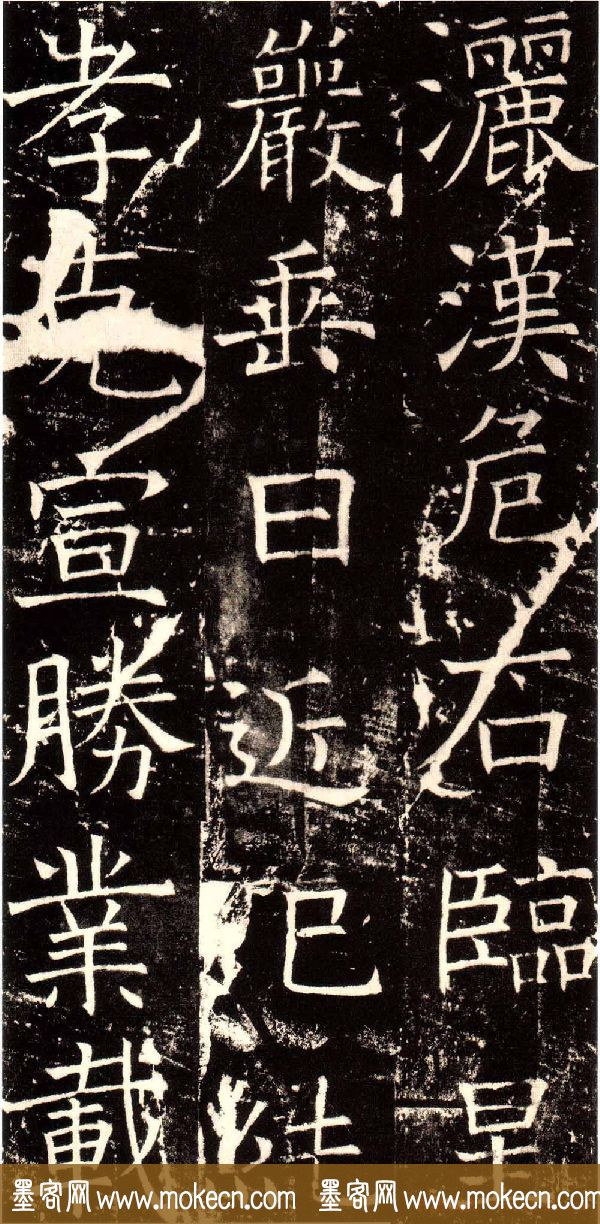 灑漢危石臨星
巖垂日近已
孝克宣勝業載
墨客网 www.mokecn.com 墨客网 www.mokecn.com